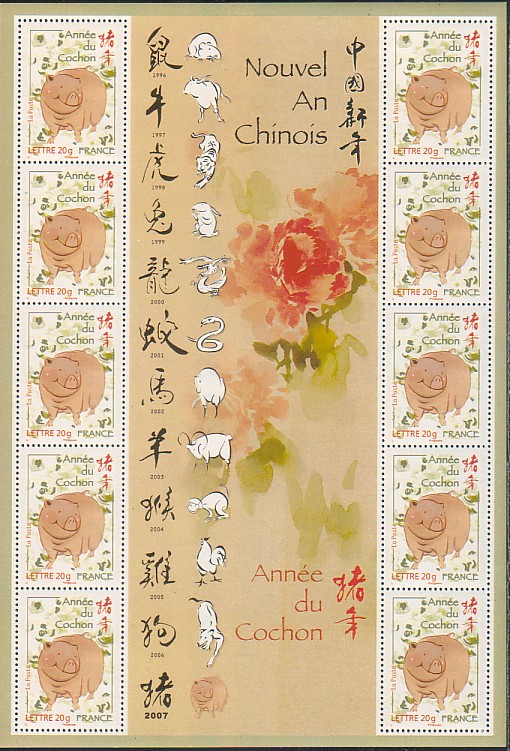 Année
du
Cochon
猪年
La Poste
LETTRE 20g FRANCE
Année
du
Cochon
猪年
La Poste
LETTRE 20g FRANCE
Année
du
Cochon
猪年
La Poste
LETTRE 20g FRANCE
Année
du
Cochon
猪年
La Poste
LETTRE 20g FRANCE
Année
du
Cochon
猪年
La Poste
LETTRE 20g FRANCE
鼠
1996
牛
1997
虎
1998
兔
1999
龍
2000
蛇
2001
馬
2002
羊
2003
猴
2004
雞
2005
狗
2006
猪
2007
Nouvel
An
Chinois
中國新年
Année
du
Cochon
猪年
Année
du
Cochon
猪年
La Poste
LETTRE 20g FRANCE
Année
du
Cochon
猪年
La Poste
LETTRE 20g FRANCE
Année
du
Cochon
猪年
La Poste
LETTRE 20g FRANCE
Année
du
Cochon
猪年
La Poste
LETTRE 20g FRANCE
Année
du
Cochon
猪年
La Poste
LETTRE 20g FRANCE